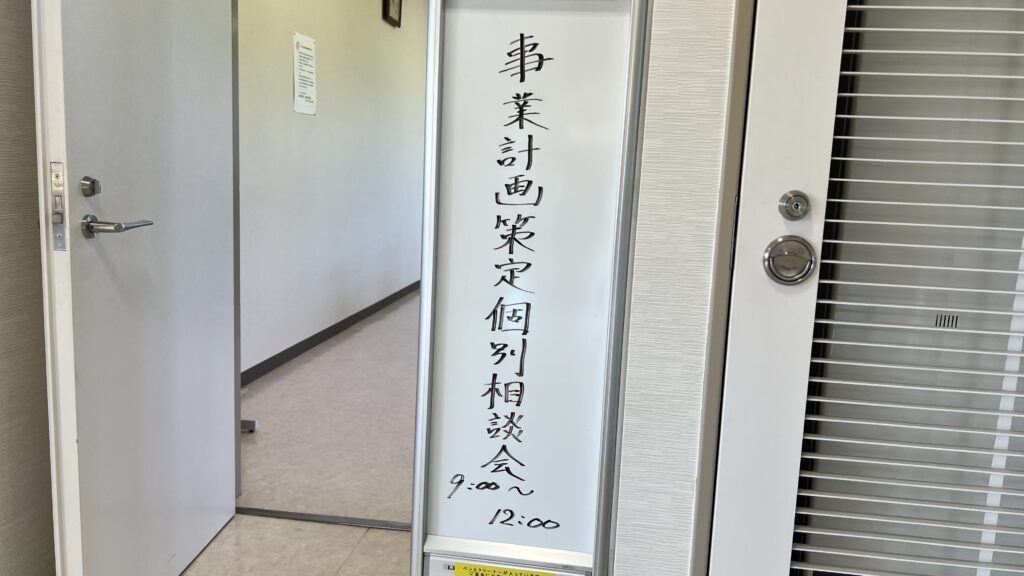 事業計画策定個別相談会
9:00~
12:00